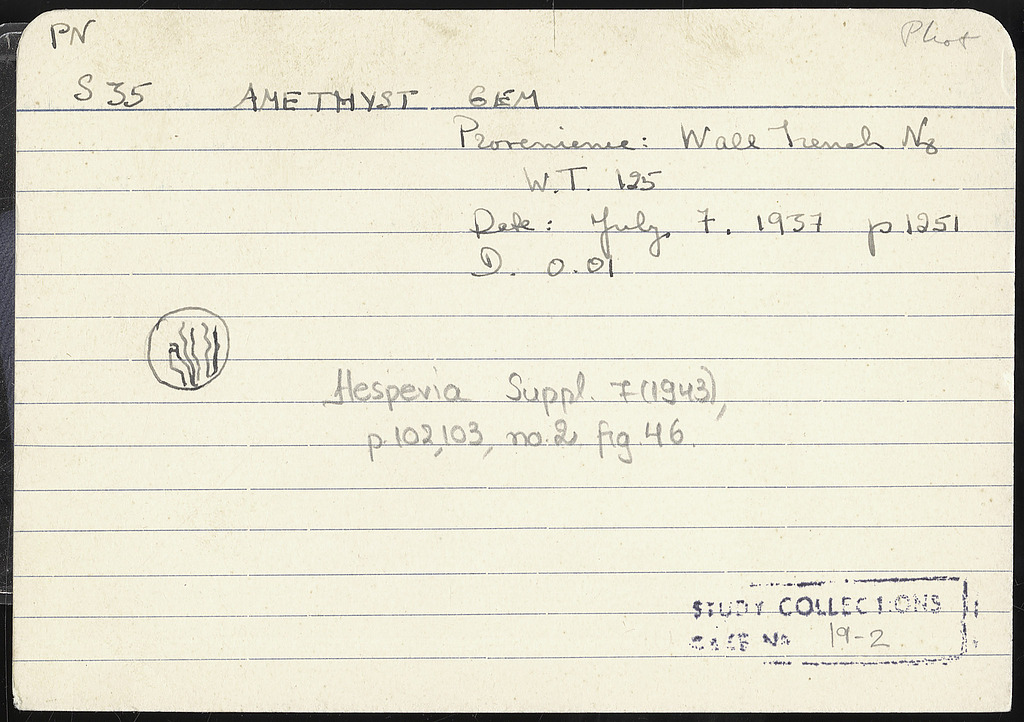 PN
Phot
S 35 AMETHYST GEM
Provenience: Wall Trench N8
W.T. 125
Date: July 7. 1937 p 1251
D. 0.01
Hesperia Suppl. 7 (1943),
p. 102,103, no. 2, fig 46.
STUDY COLLECTIONS
CASE No 19-2